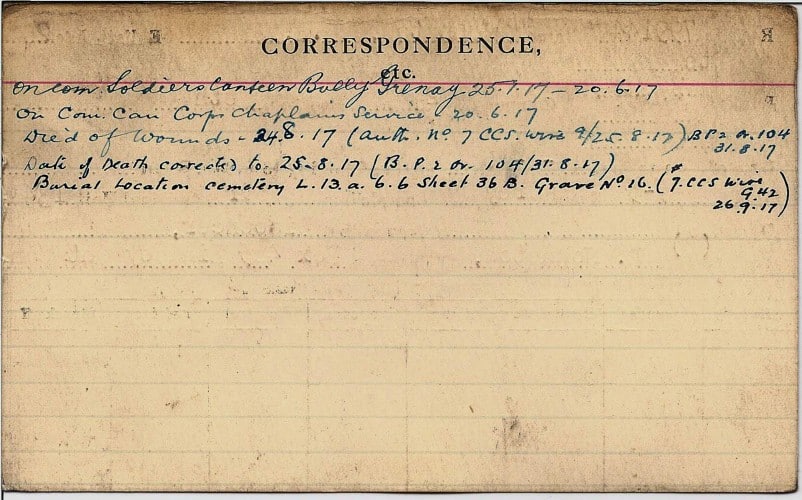 CORRESPONDENCE,
etc.
On com. Soldiers Canteen Bully Grenay 25.1.17 – 20.6.17
On Com. Can Corps Chaplains Service - 20.6.17
Died of Wounds - 24.8.17 (Auth. No 7 CCS. wire 9/25.8.17) B.P.2 Or. 104
31.8.17
Date of Death corrected to 25-8.17 (B.P.2 Or. 104/31.8.17)
Burial Location cemetery L.13.a.6.6 Sheet 36B. Grave No 16. (7.CCS wire
G.42
26.9.17)